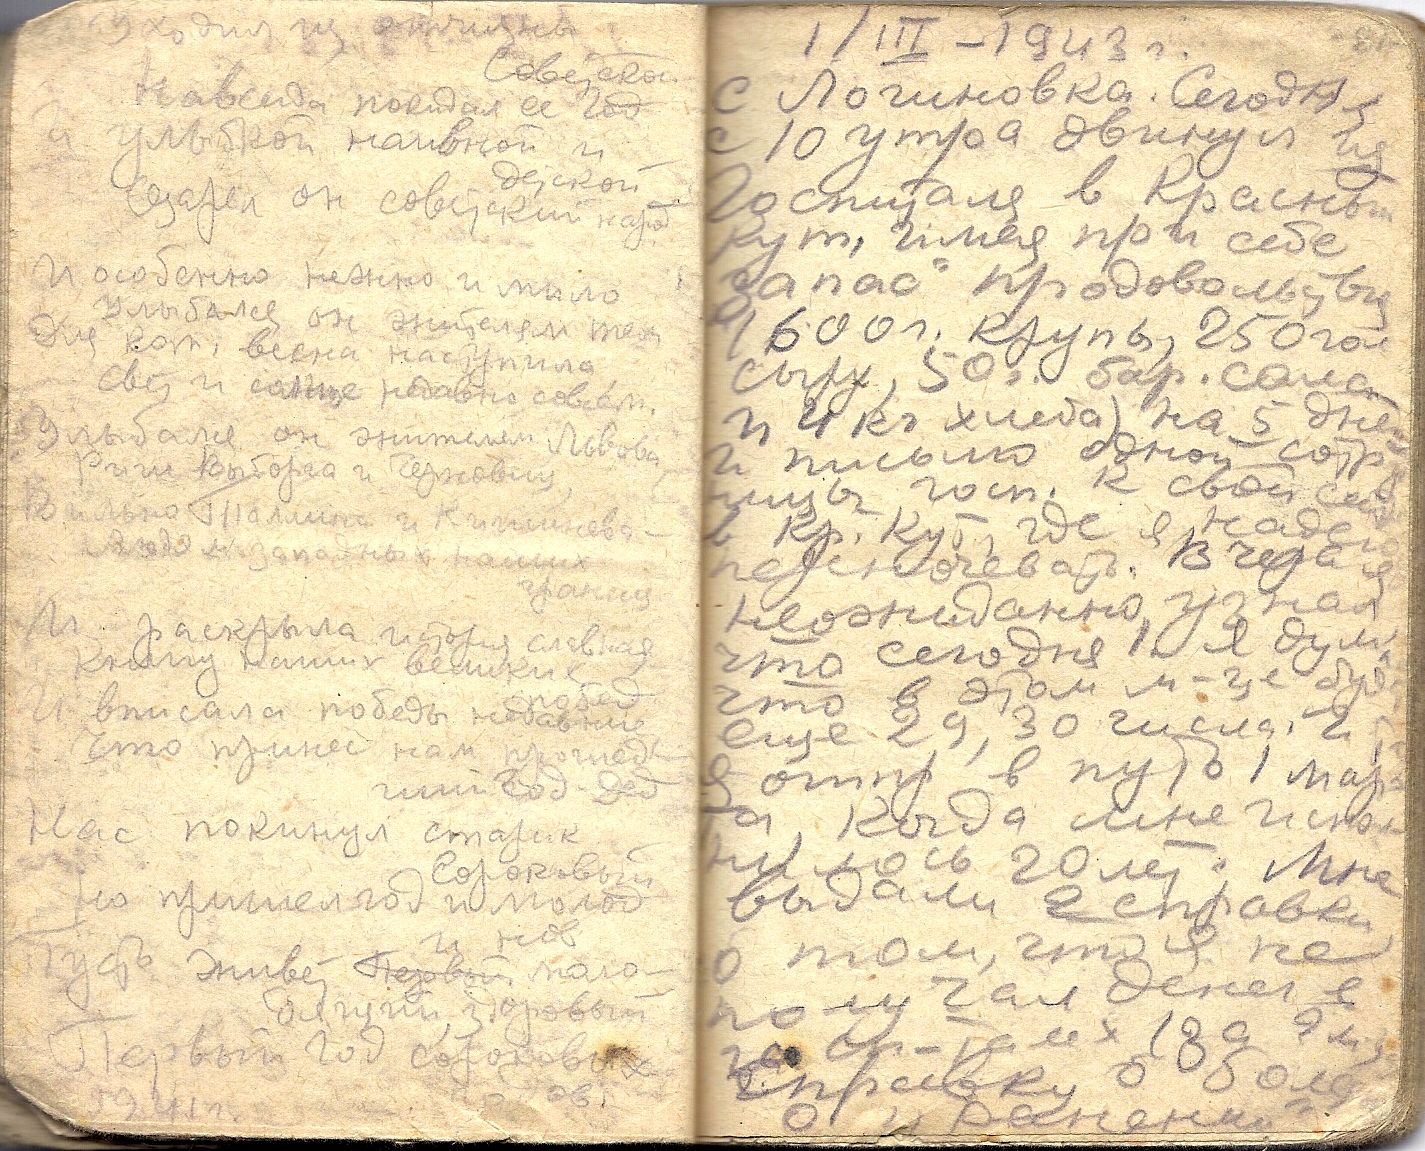 Уходил из отчизны
Советской
Навсегда покидая ее Год
И улыбкой наивной и
детской
Одарял он советский народ
И особенно нежно и мило
Улыбался он жителям тем
Для кот. весна наступила
Свет и солнце недавно совсем.
Улыбался он жителям Львова,
Риги Выборга и Черновиц,
Вильно Таллина и Кишинева —
Людям западных наших
границ
И раскрыла история славная
Книгу наших великих
побед
И вписала победы недавние
Что принес нам прошед-
ший Год-Дед
Нас покинул старик
Сороковый
Но пришел год и молод
и нов
Пусть живет Первый моло-
дящий, здоровый
Первый Год сороковых
ов.
1941 г.
1/III – 1943 г.
с Логиновка. Сегодня
с 10 утра двинул из
Госпиталя в Красный
Кут, имея при себе
"запас" продовольствия
(600 г. крупы, 250 гр
сыру, 50 г. бар. сала
и 4 кг хлеба) на 5 дней
и письмо одной сотр
ницы госп. к своей
в Кр. Кут, где я надеюсь
переночевать. Вчера я
неожиданно узнал
что сегодня 1. Я дум
что в этом м-це буд
еще 29, 30 числа. И
я отпр в путь 1 мар
та, когда мне испол
нилось 20 лет. Мне
выдали 2 справки
о том, что я не
получал денег в
госп-талях (за
справку о боле
о и ранении